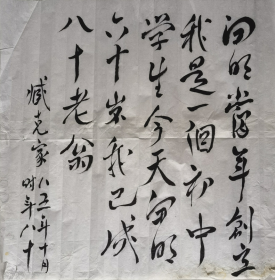 向明當年創立
我是一個初中
学生今天向明
六十岁我已成
八十老翁
臧克家 八五年十月
时年八十